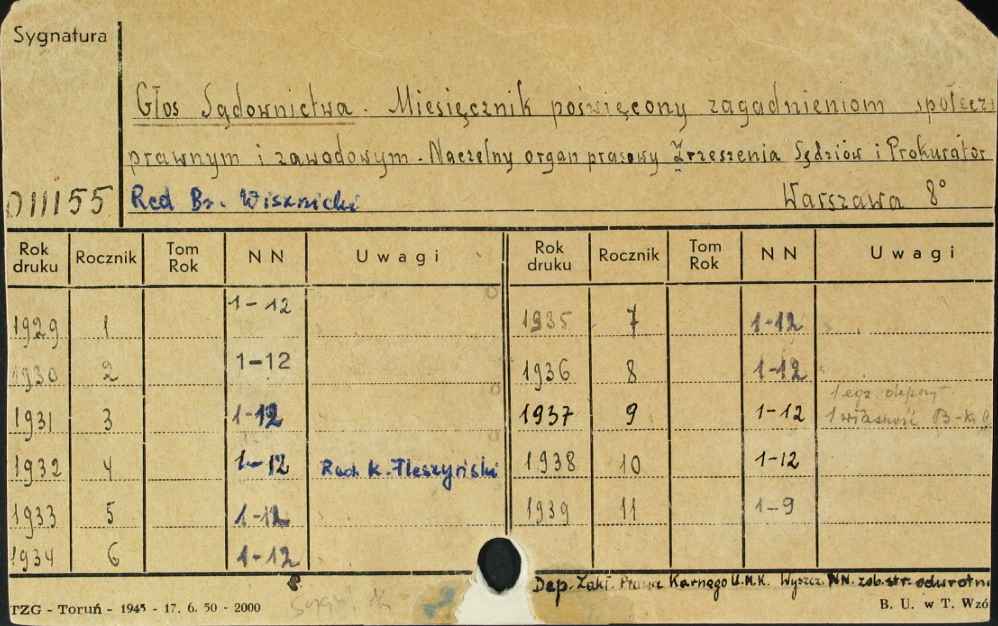 Sygnatura
Głos Sądownictwa. Miesięcznik poświęcony zagadnieniom społeczn
prawnym i zawodowym. Naczelny organ prasowy Zrzeszenia Sędziów i Prokurator
011155
Red Br. Wisznicki
Warszawa 8°
Rok druku Rocznik Tom Rok NN Uwagi Rok druku Rocznik Tom Rok NN Uwagi
1929 1 1-12 1935 7 1-12
1930 2 1-12 1936 8 1-12
1931 3 1-12 1937 9 1-12 1 egz. depozyt
1 własność B-ki
1932 4 1-12 Red. K. Fleszyński 1938 10 1-12
1933 5 1-12 1939 11 1-9
1934 6 1-12
Dep. Zakł. Prawa Karnego U.M.K. Wyszcz. NN. zob. str. odwrotn
TZG - Toruń - 1945 - 17. 6. 50 - 2000
B. U. w T. Wzó